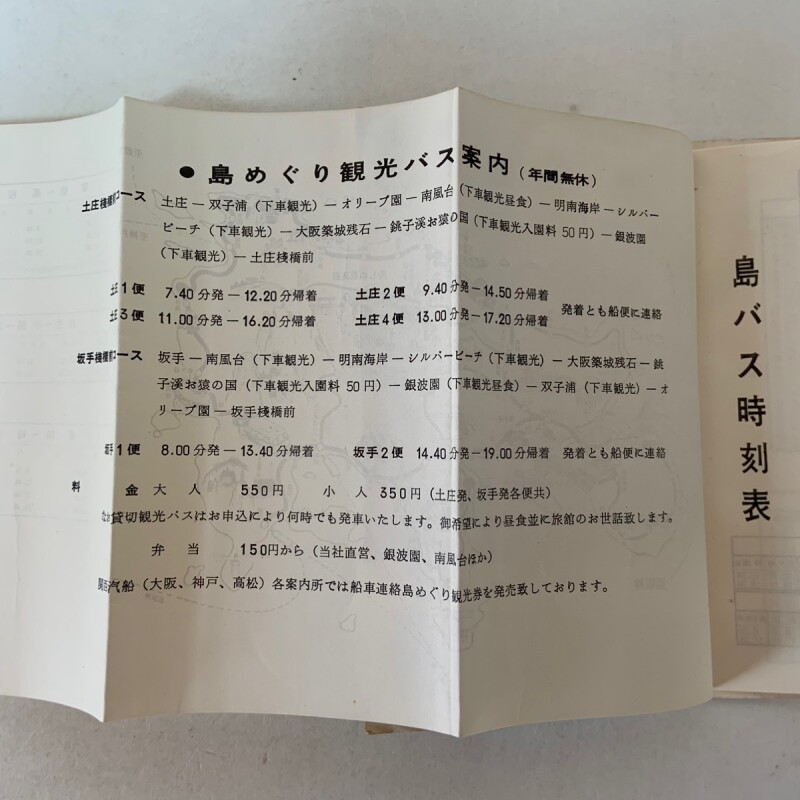 ●島めぐり観光バス案内(年間無休)
土庄桟橋前コース 土庄―双子浦(下車観光)―オリーブ園―南風台(下車観光昼食)―明南海岸―シルバー
ビーチ(下車観光)―大阪築城残石―銚子溪お猿の国(下車観光入園料50円)―銀波園
(下車観光)―土庄棧橋前
土庄1便 7.40分発―12.20分帰着 土庄2便 9.40分発―14.50分帰着
土庄3便 11.00分発―16.20分帰着 土庄4便 13.00分発―17.20分帰着 発着とも船便に連絡
坂手棧橋前コース 坂手―南風台(下車観光)―明南海岸―シルバービーチ(下車観光)―大阪築城残石―銚
子溪お猿の国(下車観光入園料50円)―銀波園(下車観光昼食)―双子浦(下車観光)―オ
リーブ園―坂手棧橋前
坂手1便 8.00分発―13.40分帰着 坂手2便 14.40分発―19.00分帰着 発着とも船便に連絡
料金 大人 550円 小人 350円(土庄発、坂手発各便共)
貸切観光バスはお申込により何時でも発車いたします。御希望により昼食並に旅館のお世話致します。
弁当 150円から(当社直営、銀波園、南風台ほか)
関西汽船(大阪、神戸、高松)各案内所では船車連絡島めぐり観光券を発売致しております。
島バス時刻表